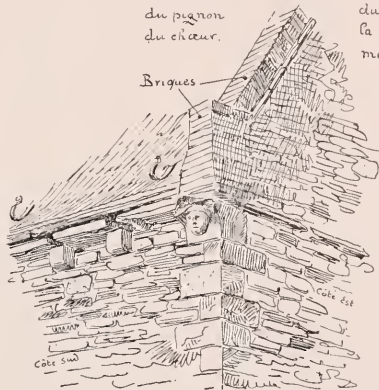 du pignon
du chœur.
du
la
Briques
Côté Est
Côté Sud